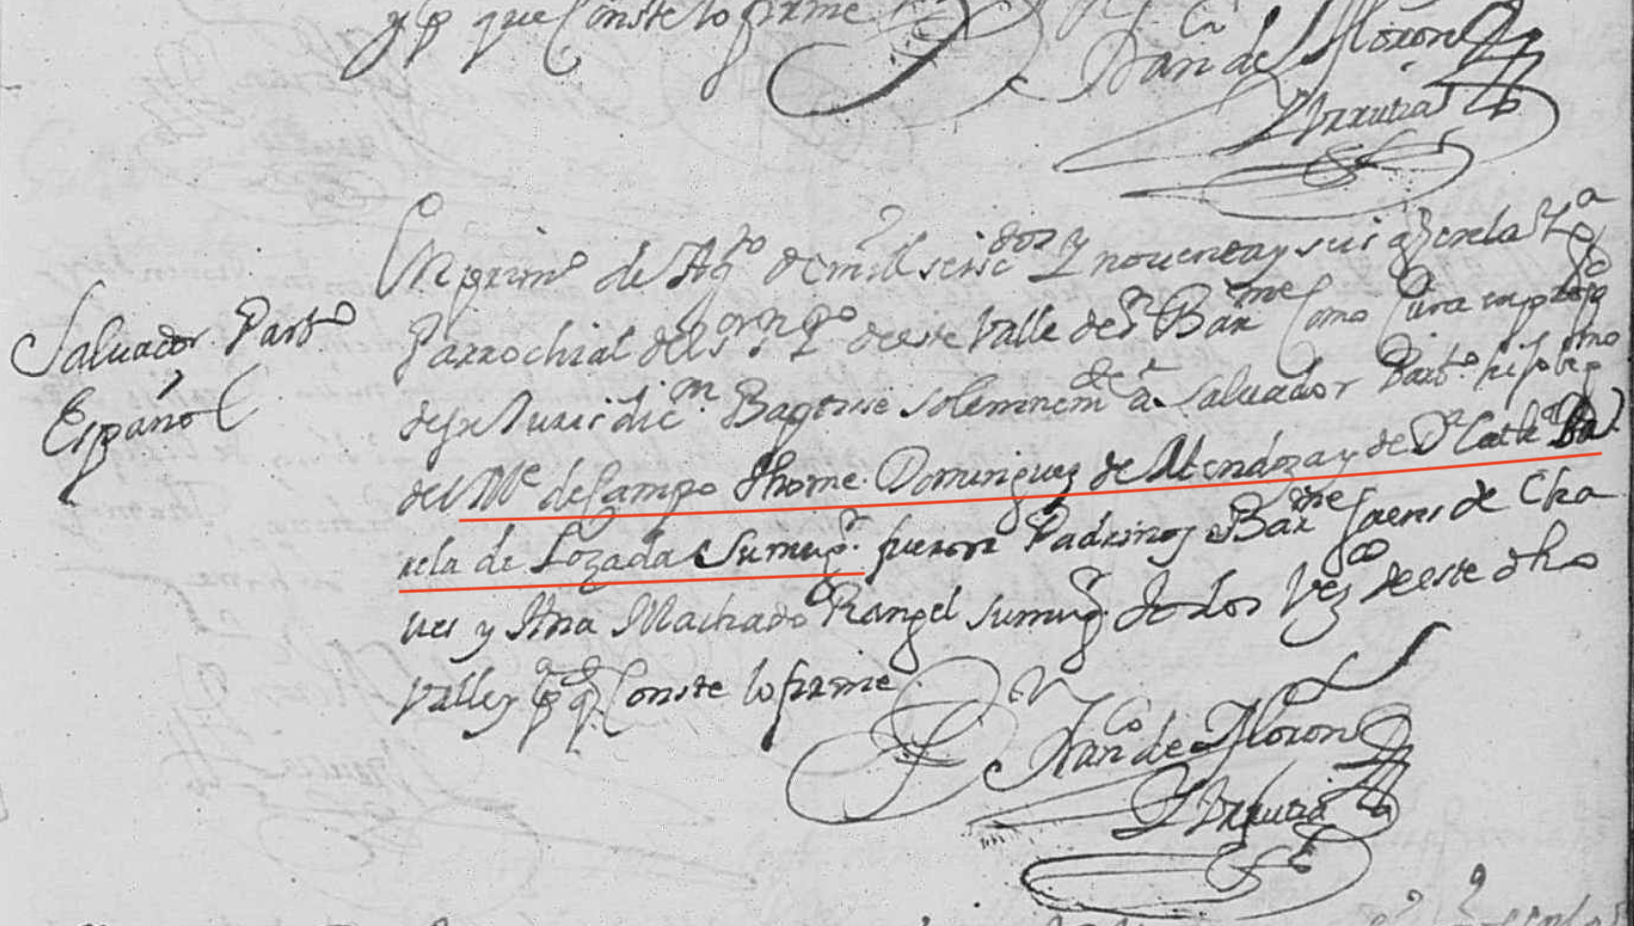 y p̱ que Conste lo firme
Franco de Moron
Yrrutia
Salvador Parto
Español
En primo de Agto de mill seisctos y noventa y seis as en la Yga
Parrochial del Sr Sn Po de este Valle de Sn Barme Como Cura
de su Jurisdicn Baptise solemnemte a Salvador Barto hijo
del Me de Campo Thome Dominguez de Mendoza y de Da Cata Ba
rela de Lozada su mugr. fueron Padrinos Barme Saens de Cha
ves y Ana Machado Rangel su mugr todos Vezos de este dho
Valle y pa q Conste lo firme
Franco de Moron
Yrrutia